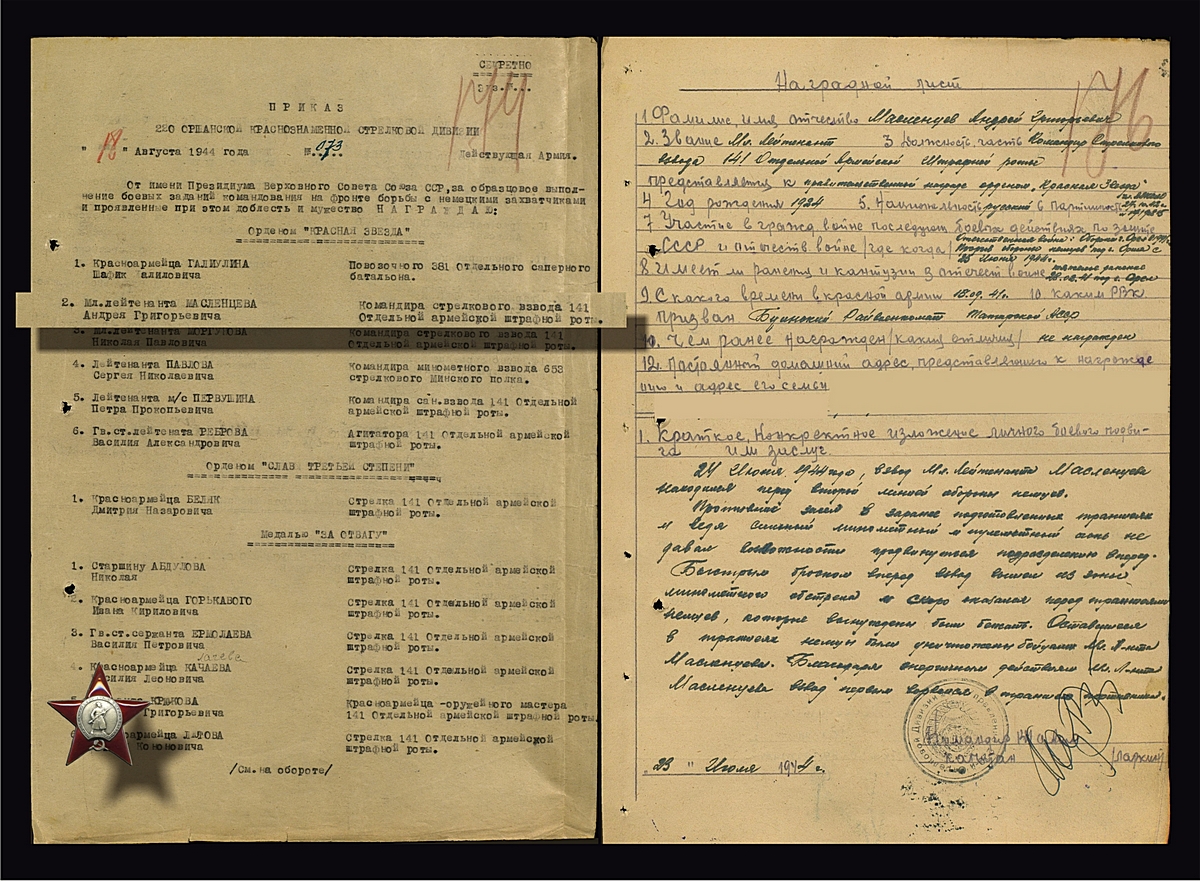 СЕКРЕТНО
Экз.№...
174
ПРИКАЗ
220 ОРШАНСКОЙ КРАСНОЗНАМЕННОЙ СТРЕЛКОВОЙ ДИВИЗИИ
"18" Августа 1944 года №.073 Действующая Армия.
От имени Президиума Верховного Совета Союза ССР,за образцовое выпол-
нение боевых заданий командования на фронте борьбы с немецкими захватчиками
и проявленные при этом доблесть и мужество НАГРАЖДАЮ:
Орденом "КРАСНАЯ ЗВЕЗДА"
1. Красноармейца ГАЛИУЛИНА Повозочного 381 Отдельного саперного
Шафик Галиловича батальона.
2. Мл.лейтенанта МАСЛЕНЦЕВА Командира стрелкового взвода 141
Андрея Григорьевича Отдельной армейской штрафной роты.
3. Мл.лейтенанта МОРГУНОВА Командира стрелкового взвода 141
Николая Павловича Отдельной армейской штрафной роты.
4. Лейтенанта ПАВЛОВА Командира минометного взвода 653
Сергея Николаевича стрелкового Минского полка.
5. Лейтенанта м/с ПЕРВУШИНА Командира сан.взвода 141 Отдельной
Петра Прокопьевича армейской штрафной роты.
6. Гв.ст.лейтената РЕБРОВА Агитатора 141 Отдельной армейской
Василия Александровича штрафной роты.
Орденом "СЛАВА ТРЕТЬЕЙ СТЕПЕНИ"
1. Красноармейца БЕЛЯК Стрелка 141 Отдельной армейской
Дмитрия Назаровича штрафной роты.
Медалью "ЗА ОТВАГУ"
1. Старшину АБДУЛОВА Стрелка 141 Отдельной армейской
Николая штрафной роты.
2. Красноармейца ГОРЬКАВОГО Стрелка 141 Отдельной армейской
Ивана Кириловича штрафной роты.
3. Гв.ст.сержанта ЕРМОЛАЕВА Стрелка 141 Отдельной армейской
Василия Петровича штрафной роты.
4. Красноармейца КАЧАЕВА Стрелка 141 Отдельной армейской
Василия Леоновича штрафной роты.
Красноармейца -оружейного мастера
Григорьевича 141 Отдельной армейской штрафной роты.
Стрелка 141 Отдельной армейской
Кононовича штрафной роты.
/См.на обороте/
Наградной лист
176
1 Фамилия, имя отчество Масленцев Андрей Григорьевич
2. Звание Мл. Лейтенант 3 Должность часть Командир Стрелкового
взвода 141 Отдельной Армейской Штрафной роты
представляется к правительственной награде орденом „Красная Звезда"
4 Год рождения 1924 5. Национальность русский 6 Партийность
7 Участие в гражд войне последующ боевых действиях по защите
СССР и отечеств. войне /где когда/
23 июня 1944г.
8 Имеет ли ранения и кантузии в отечест войне тяжелое ранение
9 С какого времени в красной армии 18.09.41г. 10 каким РВК
призван Буинский Райвоенкомат Татарской АССР
Чем ранее награжден /какия отличия/ не награжден
12. Постоянной домашний адрес представляющего к награжде
нию и адрес его семьи
1. Краткое, Конкректное изложение личного боевого подви-
га или заслуг
24 Июня 1944 года, взвод Мл. Лейтенанта Масленцева
находился перед второй линией обороны немцев.
Противник засел в заранее подготовленных траншеях
и ведя сильный минометный и пулеметный огонь не
давал возможности продвинуться подразделению вперед.
Быстрым броском вперед взвод вышел из зоны
минометного обстрела и скоро оказался перед траншеями
немцев, которые вынуждены были бежать. Оставшиеся
в траншеях немцы были уничтожены бойцами Мл. Л-нта
Масленцева. Благодаря энергичным действиям Мл. Л-нта
Масленцева взвод первым ворвался в траншеи противника.
Командир
капитан /Паркин/
„23" Июля 1944 г.